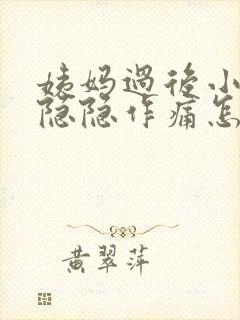 姨妈過後小
隐隐作痛怎
黄翠萍